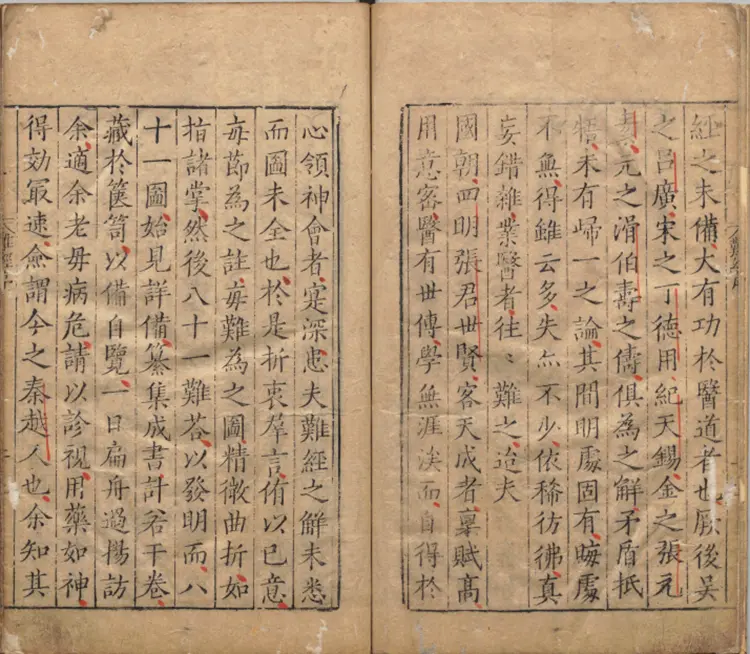 經之未備、大有功於醫道者也、厥後吳
之吕廣、宋之丁德用紀天錫、金之張元
素、元之滑伯壽之儔、俱為之解、矛盾抵
牾、未有歸一之論、其間明處固有、晦處
不無、得雖云多、失亦不少、依稀彷彿、真
妄錯雜、業醫者、往〻難之、迨夫
國朝、四明張君世賢、客天成者、稟賦高、
用意密、醫有世傳、學無涯涘、而自得於
心領神會者、寔深、患夫難經之解未悉
而圖未全也、於是折衷羣言、侑以已意、
每節為之註、每難為之圖、精徵曲折、如
指諸掌、然後八十一難荅、以發明而八
十一圖、始見詳備、纂集成書、計若干卷、
藏於篋笥、以備自覽、一日扁舟過揚訪
余、適余老母病危、請以診視、用藥如神、
得効最速、僉謂今之秦越人也、余知其